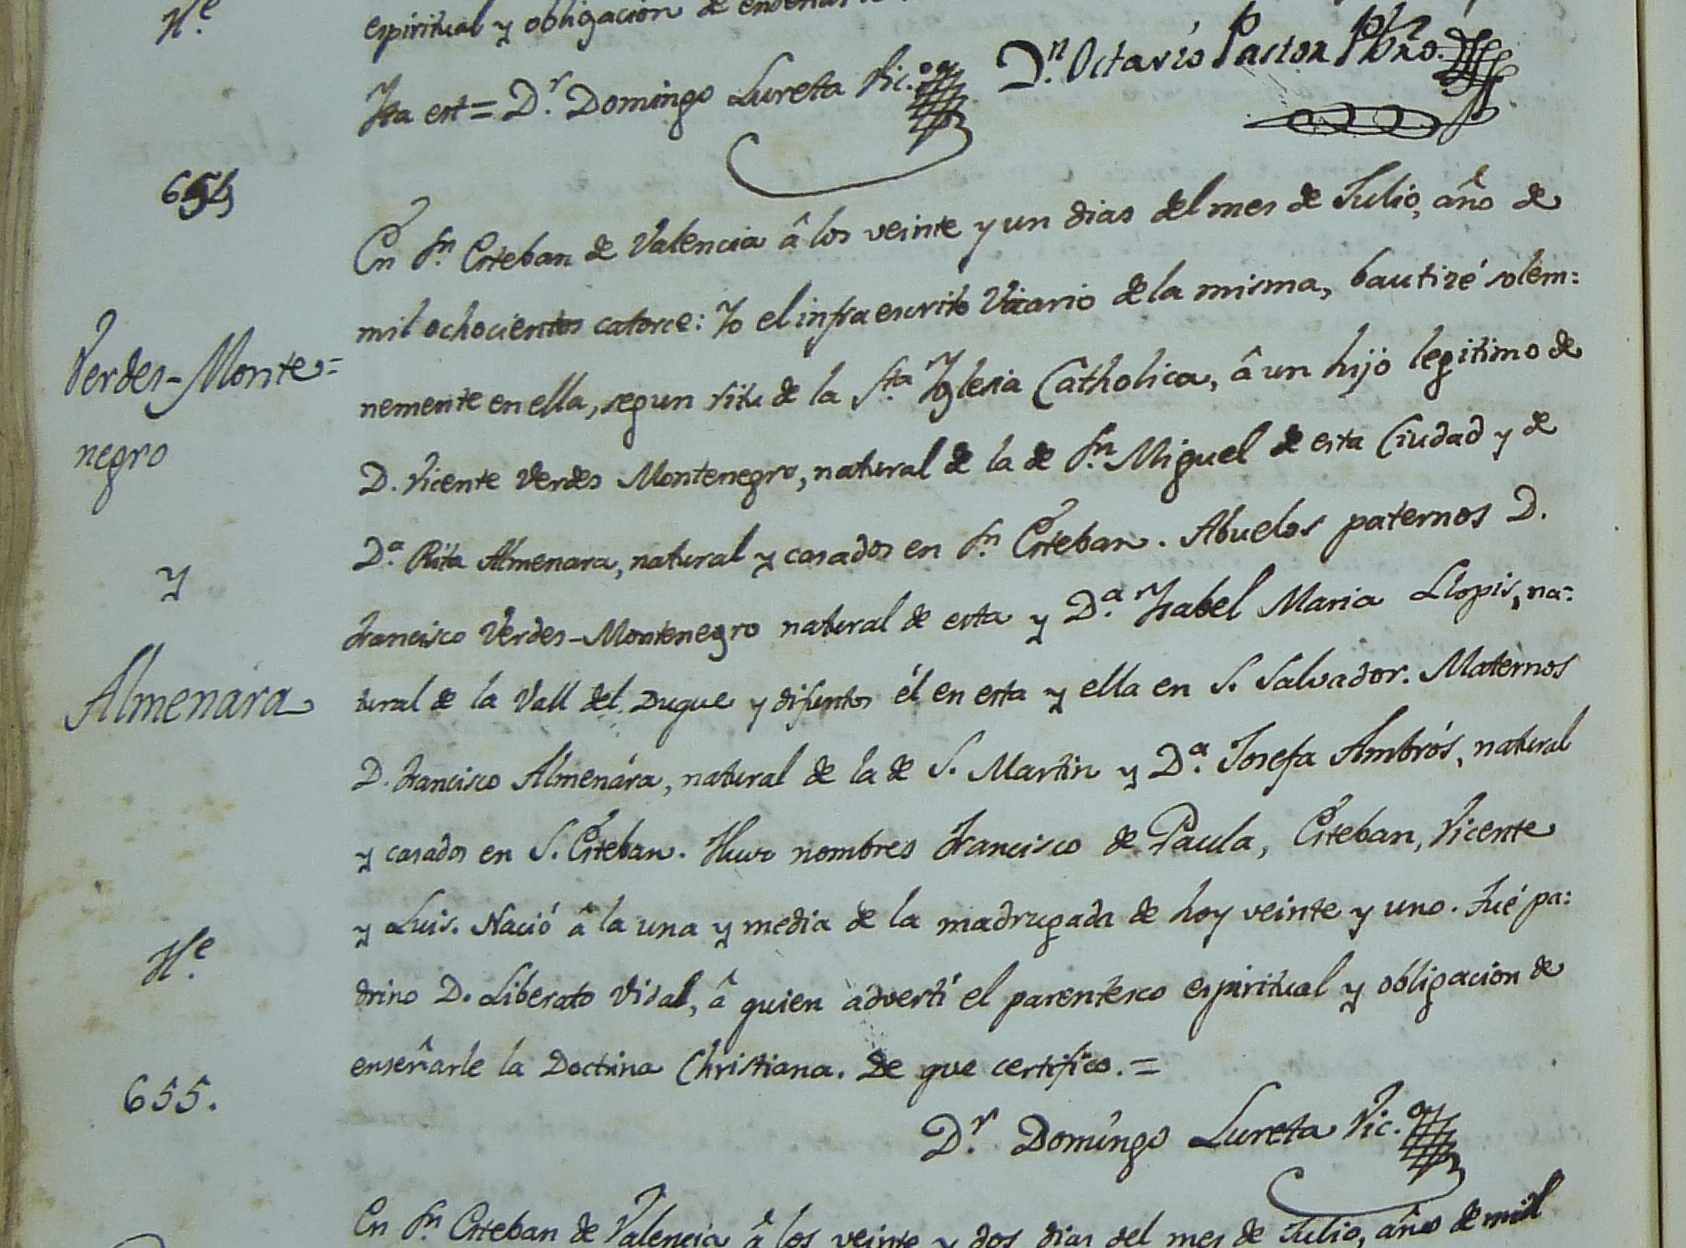 H.e
espiritual y obligacion de enseñarle
Ita est = D.r Domingo Lureta Vic.o D.n Octavio Pastor Pbro.
654
En S.n Esteban de Valencia â los veinte y un dias del mes de Julio, año de
mil ochocientos catorce: Yo el infraescrito Vicario de la misma, bautizé solem:
Verdes-Monte=
nemente en ella, segun ritu de la S.ta Yglesia Catholica, â un hijo legitimo de
negro
D. Vicente Verdes Montenegro, natural de la de S.n Miguel de esta Ciudad y de
D.a Rita Almenara, natural y casados en S.n Esteban. Abuelos paternos D.
y
Francisco Verdes-Montenegro natural de esta y D.a Ysabel Maria Llopis, na:
Almenára
tural de la Vall del Duque y difuntos él en esta y ella en S. Salvador. Maternos
D. Francisco Almenára, natural de la de S. Martin y D.a Josefa Ambrós, natural
y casados en S. Esteban. Huvo nombres Francisco de Paula, Esteban, Vicente
y Luis. Nació â la una y media de la madrugada de hoy veinte y uno. Fué pa:
H.e
drino D. Liberato Vidal, â quien advertí el parentesco espiritual y obligacion de
enseñarle la Doctrina Christiana. De que certifico. =
655.
D.r Domingo Lureta Vic.o
En S.n Esteban de Valencia â los veinte y dos dias del mes de Julio, año de mil